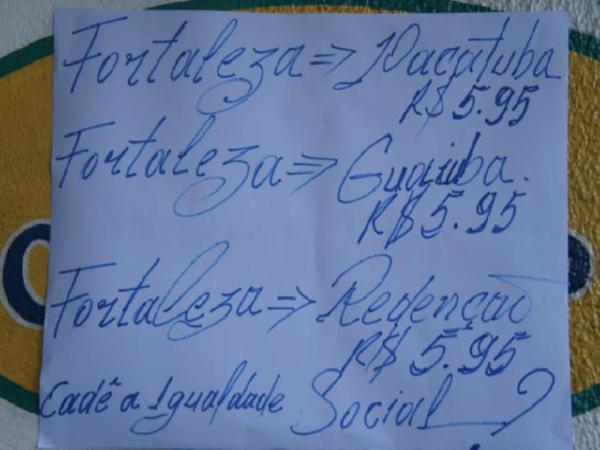 Fortaleza => Pacatuba
R$ 5.95
Fortaleza => Guaiuba.
R$ 5.95
Fortaleza => Redenção
R$ 5.95
Cadê a Igualdade Social ?